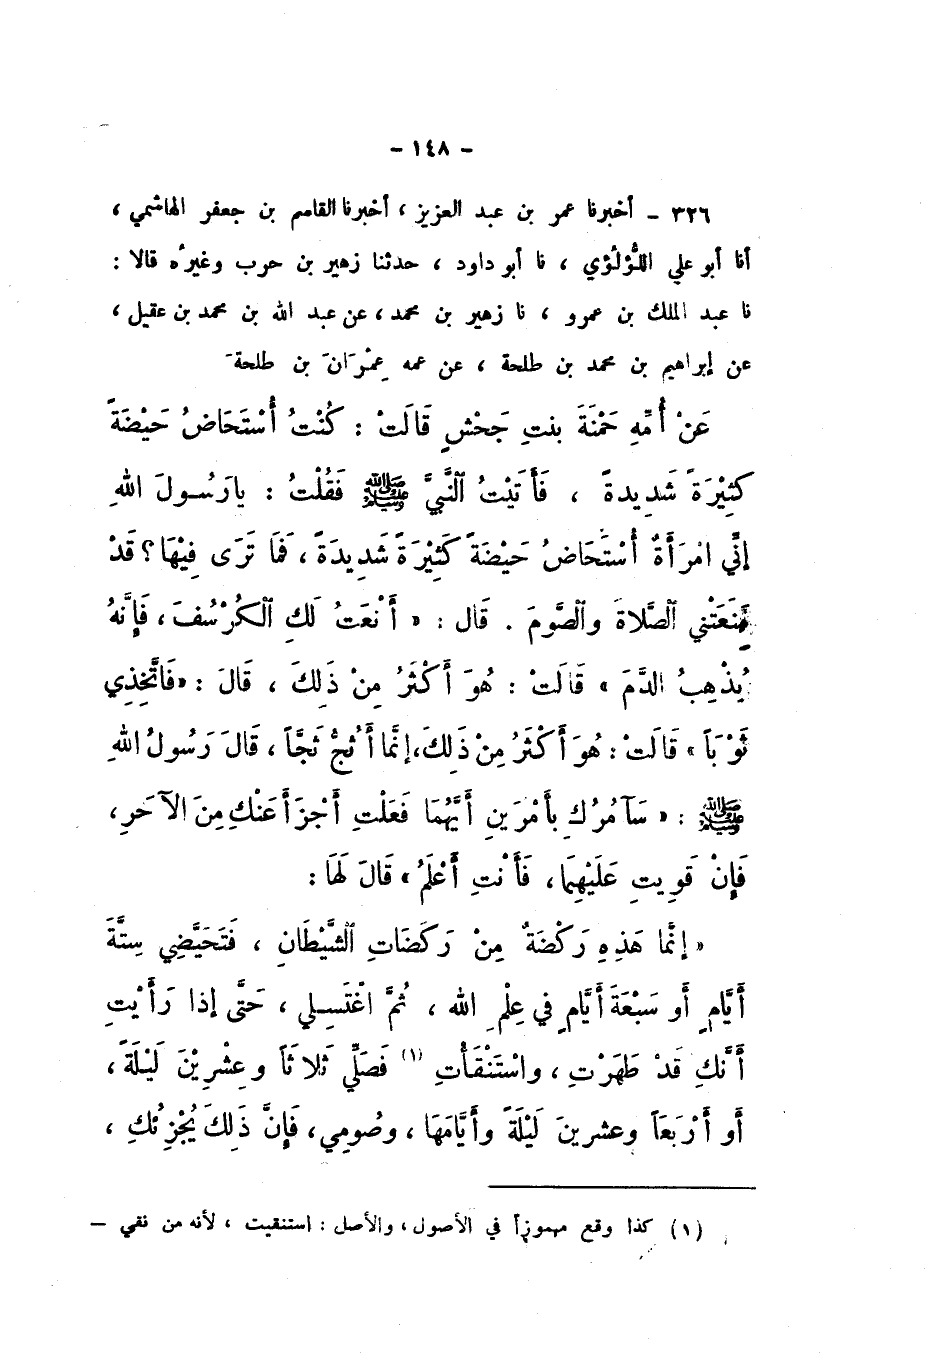 - ١٤٨ -
٣٢٦ - أخبرنا عمر بن عبد العزيز ، أخبرنا القاسم بن جعفر الهاشمي ،
أنا أبو علي اللُّؤْلُؤْي ، نا أبو داود ، حدثنا زهير بن حرب وغيرُه قالا :
نا عبد الملك بن عمرو ، نا زهير بن محمد ، عن عبد الله بن محمد بن عقيل ،
عن إبراهيم بن محمد بن طلحة ، عن عمه عِمْرَانَ بن طلحةَ
عَنْ أُمِّهِ حَمْنَةَ بنتِ جَحْشٍ قَالَتْ : كُنْتُ أُسْتَحَاضُ حَيْضَةً
كَثِيْرَةً شَدِيدةً ، فَأَتَيْتُ النَّبِيَّ ﷺ فَقُلْتُ : يارَسُولَ اللهِ
إنِّي امْرَأَةٌ أُسْتَحَاضُ حَيْضَةً كَثِيْرَةً شَدِيدَةً ، فَمَا تَرَى فِيْهَا؟ قَدْ
مَنَعَتْنِي الصَّلاةَ والصَّومَ . قَال : « أَنْعَتُ لَكِ الكُرْسُفَ ، فَإِنَّهُ
يُذْهِبُ الدَّمَ » قَالَتْ : هُوَ أَكْثَرُ مِنْ ذَلِكَ ، قَالَ : «فَاتَّخِذِي
ثَوْبَاً » قَالَتْ : هُوَ أَكْثَرُ مِنْ ذَلِكَ، إنَّمَا أَثُجُّ ثَجَّاً ، قَالَ رَسُولُ اللهِ
ﷺ : « سَآمُرُكِ بأَمْرَينِ أَيَّهُمَا فَعَلْتِ أَجْزَأَ عَنْكِ مِنَ الآخَرِ ،
فَإِنْ قَوِيتِ عَلَيْهِمَا ، فَأَنْتِ أَعْلَمُ » قَالَ لَهَا :
« إنَّمَا هَذِهِ رَكْضَةٌ مِنْ رَكَضَاتِ الشَّيْطَانِ ، فَتَحَيَّضِي سِتَّةَ
أَيَّامٍ أَو سَبْعَةَ أَيَّامٍ في عِلْمِ الله ، ثُمَّ اغْتَسِلي ، حَتَّى إذا رَأَيْتِ
أَنَّكِ قَدْ طَهَرْتِ ، واسْتَنْقَأْتِ (١) فَصَلِّي ثَلاثَاً وعِشْرِيْنَ لَيْلَةً ،
أَو أَرْبَعَاً وعشرينَ لَيْلَةً وأَيَّامَهَا ، وصُومِي، فَإِنَّ ذَلِكَ يُجْزِئُكِ ،
(١) كذا وقع مهموزاً في الأصول ، والأصل : استنقيت ، لأنه من نقي –